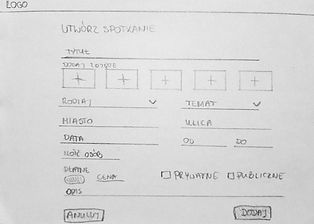 LOGO
UTWÓRZ SPOTKANIE
TYTUŁ
DODAJ ZDJĘCIE
RODZAJ TEMAT
MIASTO ULICA
DATA OD DO
ILOŚĆ OSÓB
PŁATNE
CENA PRYWATNE PUBLICZNE
OPIS
ANULUJ DODAJ